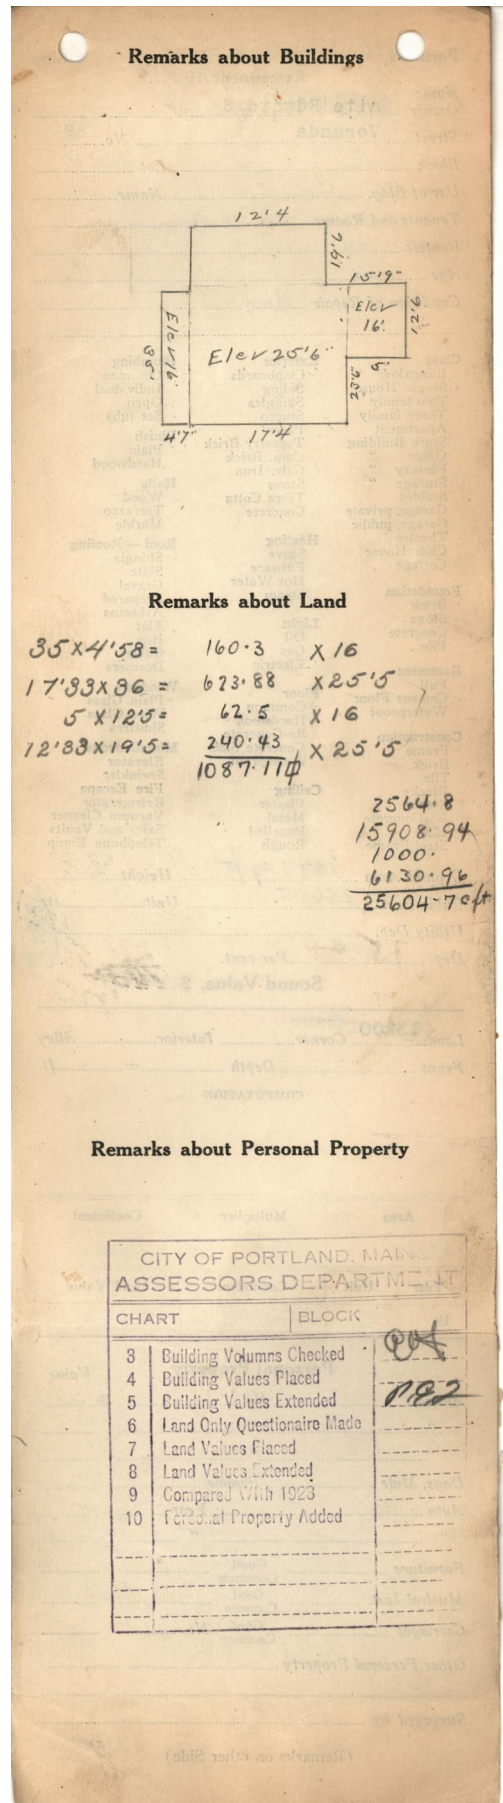 Remarks about Buildings
12'4
19'6"
15'9"
Elev
16'
12'6"
Elev 16'
35'
Elev 25'6"
5'
23'6"
4'7"
17'4
Remarks about Land
35 X 4'58 = 160.3 X 16
17'33 X 36 = 623.88 X 25'5
5 X 12'5 = 62.5 X 16
12'33 X 19'5 = 240.43 X 25'5
1087.11
2564.8
15908.94
1000.
6130.96
25604.7 cft
Remarks about Personal Property
CITY OF PORTLAND, MAINE
ASSESSORS DEPARTMENT
CHART BLOCK
3 Building Volumns Checked
4 Building Values Placed
5 Building Values Extended
6 Land Only Questionaire Made
7 Land Values Placed
8 Land Values Extended
9 Compared With 1923
10 Personal Property Added